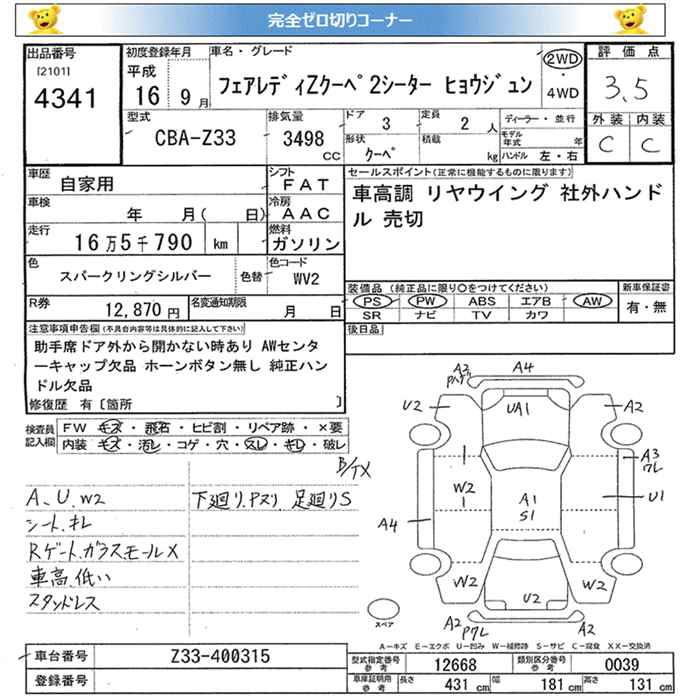 完全ゼロ切りコーナー
出品番号
[2101]
4341
初度登録年月
平成
16 9月
車名・グレード
フェアレディZクーペ2シーター ヒョウジュン
2WD
・
4WD
評価点
3.5
外装 内装
C C
型式
CBA-Z33
排気量
3498
CC
ドア
3
定員
2 人
形状
クーペ
積載
kg
ディーラー・並行
モデル年式 年
ハンドル 左・右
車歴
自家用
シフト
FAT
車検
年 月( 日)
冷房
AAC
走行
16万5千790 km
燃料
ガソリン
色
スパークリングシルバー
色替
色コード
WV2
R券
12,870円
名変通知期限
月 日
セールスポイント(正常に機能するものに限ります)
車高調 リヤウイング 社外ハンド
ル 売切
装備品 (純正品に限り○をつけてください)
PS PW ABS エアB AW
SR ナビ TV カワ
新車保証書
有・無
後日品
注意事項申告欄(不具合内容等は具体的に記入して下さい)
助手席ドア外から開かない時あり AWセンタ
ーキャップ欠品 ホーンボタン無し 純正ハン
ドル欠品
修復歴 有〔箇所 〕
検査員
記入欄
FW キズ・飛石・ヒビ割・リペア跡・×要
内装 キズ・汚レ・コゲ・穴・スレ・キレ・破レ
A、U、W2
シート、キレ
Rゲート、ガラス、モールX
車高、低い
スタッドレス
下廻り、Pヌリ 足廻りS
A4
U2
UA1
A2
A3
U1
W2
A1
S1
A4
W2
W2
U2
A2
A2
スペア
A-キズ E-エクボ U-凹み W-補修跡 S-サビ C-腐食 XX-交換済
車台番号
Z33-400315
登録番号
型式指定番号
参考
12668
類別区分番号
参考
0039
車庫証明用
参考
長さ 431 cm
幅 181 cm
高さ 131 cm